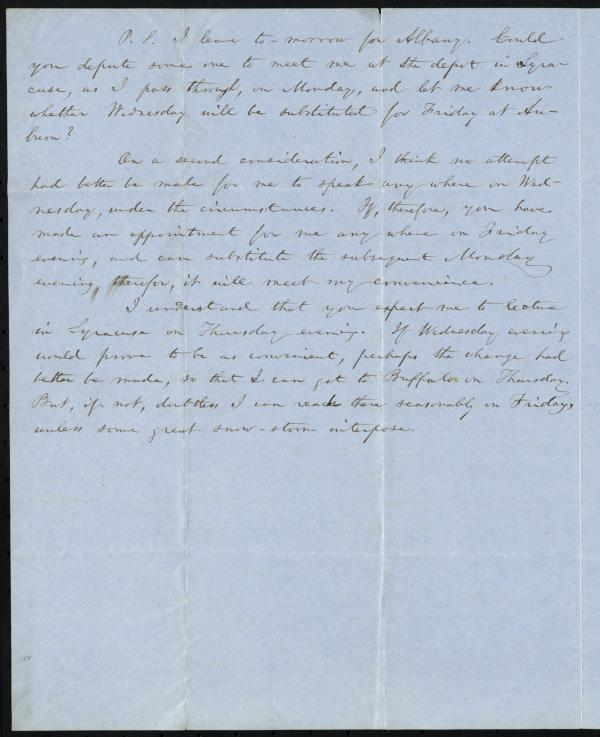 P. S. I leave to-morrow for Albany. Could
you depute some one to meet me at the depot in Syra-
cuse, as I pass through, on Monday, and let me know
whether Wednesday will be substituted for Friday at Au-
burn?
On a second consideration, I think no attempt
had better be made for me to speak any where on Wed-
nesday, under the circumstances. If, therefore, you have
made an appointment for me any where on Friday
evening, and can substitute the subsequent Monday
evening, therefor, it will meet my convenience.
I understand that you expect me to lecture
in Syracuse on Thursday evening. If Wednesday evening
would prove to be as convenient, perhaps the change had
better be made, so that I can get to Buffalo on Thursday.
But, if not, doubtless I can reach there seasonably on Friday,
unless some great snow-storm interpose.